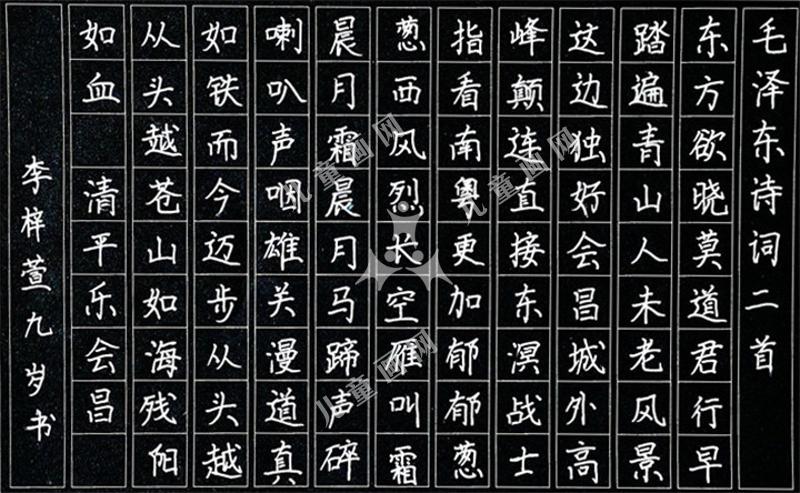 毛泽东诗词二首
东方欲晓莫道君行早
踏遍青山人未老风景
这边独好会昌城外高
峰颠连直接东溟战士
指看南粤更加郁郁葱
葱西风烈长空雁叫霜
晨月霜晨月马蹄声碎
喇叭声咽雄关漫道真
如铁而今迈步从头越
从头越苍山如海残阳
如血 清平乐会昌
李梓萱九岁书
儿童画网
儿童画网
儿童画网